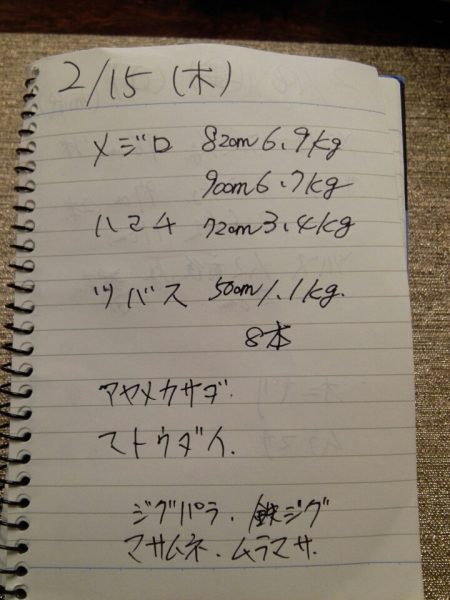 2/15 (木)
メジロ 82cm 6.9kg
90cm 6.7kg
ハマチ 72cm 3.4kg
ツバス 50cm 1.1kg.
8本
アヤメカサゴ.
マトウダイ.
ジグパラ. 鉄ジグ
マサムネ. ムラマサ.